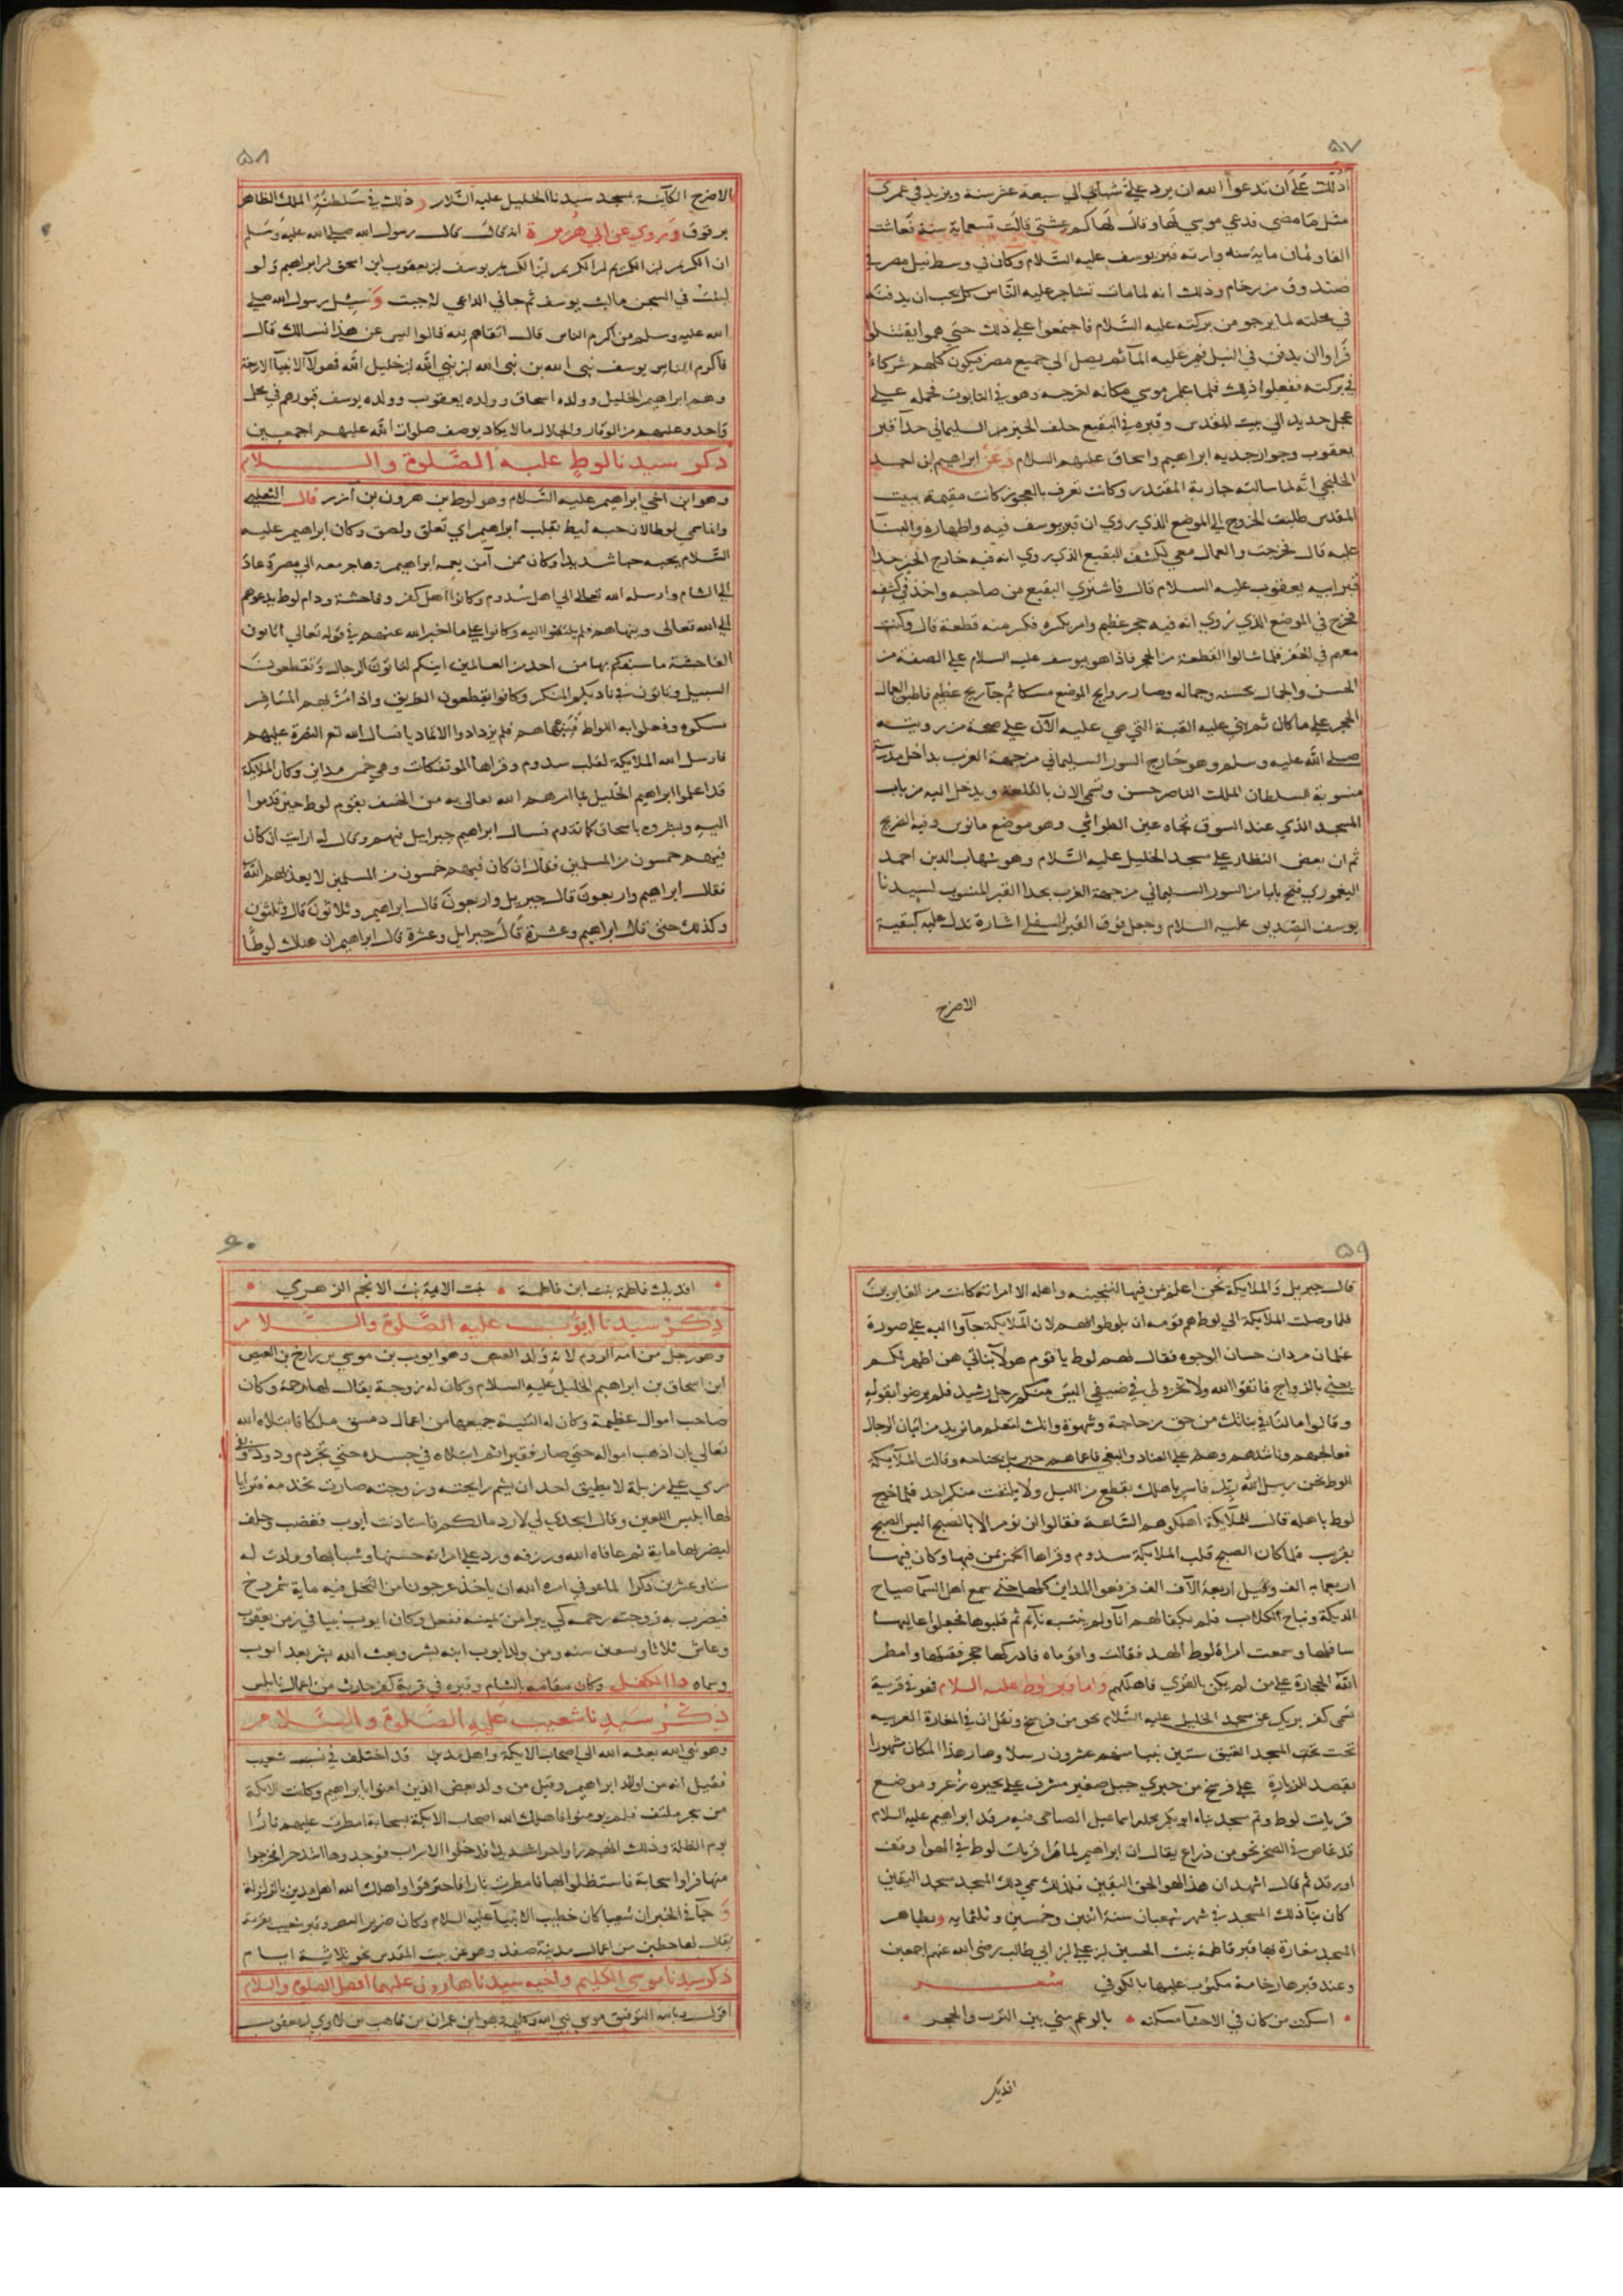 ٥٧
ادلك على ان تدعوا الله ان يرد علي شبابي الي سبعة عشر سنة ويزيد في عمري
مثل ما مضي فدعي موسي لها وقال لها كم عشتي قالت تسعماية سنة فعاشت
الفا وثمان ماية سنه وارته قبر يوسف عليه السلام وكان في وسط نيل مصر في
صندوق من رخام وذلك انه لما مات تشاجر عليه الناس كل يحب ان يدفنه
في محلته لما يرجو من بركته عليه السلام فاجتمعوا على ذلك حتي هموا يقتتلوا
فراوا ان يدفن في النيل فيمر عليه المآ ثم يصل الي جميع مصر فيكون كلهم شركاء
في بركته ففعلوا ذلك فلما علم موسي مكانه اخرجه وهو في التابوت فحمله علي
عجل حديد الي بيت المقدس وقبره في البقيع خلف الحيز من السليماني حدآ قبر
يعقوب وجوار جديه ابراهيم واسحاق عليهم السلام وعن ابراهيم ابن احمد
الخلنجي انه لما سالته جارية المقتدر وكانت تعرف بالعجوز كانت مقيمة ببيت
المقدس طلبت الخروج الي الموضع الذي روي ان قبر يوسف فيه واظهاره والبنآ
عليه قال فخرجت والعمال معي لكشف البقيع الذي روي انه فيه خارج الحيز حدا
قبر ابيه يعقوب عليه السلام قال فاشتري البقيع من صاحبه واخذ في كشفه
فخرج في الموضع الذي روي انه فيه حجر عظيم وامر بكسره فكسر منه قطعة قال وكنت
معهم في الحفر فلما شالوا القطعة من الحجر فاذا هو يوسف عليه السلام علي الصفة من
الحسن والجمال بحسنه وجماله وصار روايح الموضع مسكا ثم جآ ريح عظيم فاطبق العمال
الحجر علي ما كان ثم بني عليه القبة التي هي عليه الآن علي صحة من رويته
صلي الله عليه وسلم وهو خارج السور السليماني من جهة الغرب بداخل مدرسة
منسوبة للسلطان الملك الناصر حسن وتسمي الان بالقلعة ويدخل اليه من باب
المسجد الذي عند السوق تجاه عين الطواشي وهو موضع مانوس وفيه الضريح
ثم ان بعض النظار علي مسجد الخليل عليه السلام وهو شهاب الدين احمد
اليغموري فتح بابا من السور السليماني من جهة الغرب بحدا القبر المنسوب لسيدنا
يوسف الصديق عليه السلام وجعل فوق القبر السفلي اشارة تدل عليه كبقية
الاضرح
٥٨
الاضرح الكآينة بمسجد سيدنا الخليل عليه السلام وذلك في سلطنة الملك الظاهر
برقوق وروي عن ابي هريرة انه قال قال رسول الله صلي الله عليه وسلم
ان الكريم ابن الكريم ابن الكريم ابن الكريم يوسف ابن يعقوب ابن اسحق ابن ابراهيم ولو
لبثت في السجن مالبث يوسف ثم جاني الداعي لاجبت وسئل رسول الله صلي
الله عليه وسلم من اكرم الناس قال اتقاهم لله قالوا ليس عن هذا نسالك قال
فاكرم الناس يوسف نبي الله بن نبي الله ابن نبي الله ابن خليل الله فهولآ الانبيآ الاربعة
وهم ابراهيم الخليل وولده اسحاق وولده يعقوب وولده يوسف قبورهم في محل
واحد وعليهم من الوقار والجلال ما لا يكاد يوصف صلوات الله عليهم اجمعين
ذكر سيدنا لوط عليه الصلوة والسلام
وهو ابن اخي ابراهيم عليه السلام وهو لوط بن هرون بن آزر قال الثعلبي
وانما سمي لوطا لان حبه ليط بقلب ابراهيم اي تعلق ولصق وكان ابراهيم عليه
السلام يحبه حبا شديدا وكان ممن آمن بعمه ابراهيم وهاجر معه الي مصر وعاد
الي الشام وارسله الله تعالى الي اهل سدوم وكانوا اهل كفر وفاحشة ودام لوط يدعوهم
الي الله تعالى وينهاهم فلم يلتفتوا اليه وكانوا علي ما اخبر الله عنهم في قوله تعالي اتاتون
الفاحشة ما سبقكم بها من احد من العالمين اينكم لتاتون الرجال وتقطعون
السبيل وتاتون في ناديكم المنكر وكانوا يقطعون الطريق واذا مر بهم المسافر
مسكوه وفعلوا به اللواط فنهاهم فلم يزدادوا الا تماديا فسال الله تع النصرة عليهم
فارسل الله الملايكة لقلب سدوم وقراها الموتفكات وهي خمس مداين وكان الملايكة
قد اعلموا ابراهيم الخليل بما امرهم الله تعالى به من الخسف بقوم لوط حين قدموا
اليه وبشروه باسحاق كما تقدم فسال ابراهيم جبرايل فيهم وقال له ارايت ان كان
فيهم خمسون من المسلمين فقال ان كان فيهم خمسون من المسلمين لا يعذبهم الله
فقال ابراهيم واربعون قال جبريل واربعون قال ابراهيم وثلاثون قال وثلثون
وكذلك حتي قال ابراهيم وعشرة قال جبرايل وعشرة قال ابراهيم ان هناك لوطا
٥٩
قال جبريل والملايكة نحن اعلم بمن فيها لننجينه واهله الا امراته كانت من الغابرين
فلما وصلت الملايكة الي لوط هم قومه ان يلوطوا بهم لان الملايكة جآوا اليه علي صورة
غلمان مردان حسان الوجوه فقال لهم لوط يا قوم هولآ بناتي هن اطهر لكم
يعني بالزواج فاتقوا الله ولا تخزوني في ضيفي اليس منكم رجل رشيد فلم يرضوا بقوله
وقالوا ما لنا في بناتك من حق من حاجة وشهوة وانك لتعلم ما نريد من اتيان الرجال
فعالجهم وناشدهم وهم علي العناد والبغي فاعماهم جبريل بجناحه وقالت الملآيكة
الوط نحن رسل الله ربك فاسر باهلك بقطع من الليل ولا يلتفت منكم احد فلما خرج
لوط باهله قال للملآيكة اهلكوهم الساعة فقالوا لن نومر الا بالصبح اليس الصبح
بقريب فلما كان الصبح قلب الملايكة سدوم وقراها الخمس بمن فيها وكان فيها
اربعماية الف وقيل اربعة الآف الف فرفعوا المداين كلها حتي سمع اهل السمآ صياح
الديكة ونباح الكلاب فلم يكفا لهم انآ ولم ينتبه نآيم ثم قلبوها فجعلوا عاليها
سافلها وسمعت امراة لوط الهد فقالت واقوماه فادركها حجر فقتلها وامطر
الله الحجارة علي من لم يكن بالقري فاهلكهم واما قبر لوط عليه السلام فهو في قرية
تسمي كفر بريك عن مسجد الخليل عليه السلام نحو من فرسخ ونقل ان في المغارة الغربيه
تحت المسجد العتيق ستين نبيا منهم عشرون رسلا وصار هذا المكان مشهورا
يقصد للزيارة علي فرسخ من حبري جبل صغير مشرف علي بحيرة زغر وموضع
قريات لوط وثم مسجد بناه ابو بكر محمد اسماعيل الصباحي فيه مرقد ابراهيم عليه السلام
قد غاص في الصخر نحو من ذراع يقال ان ابراهيم لما مرا قريات لوط في الهوا وقف
او رقد ثم قال اشهد ان هذا لهو الحق اليقين فلذلك سمي ذلك المسجد مسجد اليقين
كان بنآ ذلك المسجد في شهر شعبان سنة اثنين وخمسين وثلثمايه وبظاهر
المسجد مغارة بها قبر فاطمة بنت الحسين ابن علي ابن ابي طالب رضي الله عنهم اجمعين
وعند قبرها رخامة مكتوب عليها بالكوفي شعر
اسكنت من كان في الاحشآ مسكنه بالرغم مني بين الترب والحجر
افديك
٦٠
افديك فاطمة بنت ابن فاطمة بنت الايمة بنت الانجم الزهري
ذكر سيدنا ايوب عليه الصلوة والسلام
وهو رجل من امه الروم لانه ولد العيص وهو ايوب بن موسي بن رازخ بن العيص
ابن اسحاق بن ابراهيم الخليل عليه السلام وكان له زوجة يقال لها رحمة وكان
صاحب اموال عظيمة وكان له البثنية جميعها من اعمال دمشق ملكا فابتلاه الله
تعالي بان اذهب امواله حتي صار فقيرا ثم ابتلاه في جسده حتي تجذم ودود وبقي
مرمي علي مزبلة لا يطيق احد ان يشم رايحته وزوجته صارت تخدمه فترايا
لها ابليس اللعين وقال اسجدي لي لارد مالكم فاستاذنت ايوب فغضب وحلف
ليضربها ماية ثم عافاه الله ورزقه ورد علي امراته حسنها وشبابها وولدت له
ستا وعشرين ذكرا لما عوفي امره الله ان ياخذ عرجونا من النخل فيه ماية شمروخ
فيضرب به زوجته رحمه كي يبرا من يمينه ففعل وكان ايوب نبيا في زمن يعقوب
وعاش ثلاثا وتسعين سنه ومن ولد ايوب ابنه بشر وبعث الله بشر بعد ايوب
وسماه ذا الكفل وكان مقامه بالشام وقبره في قرية كفر حارث من اعمال نابلس
ذكر سيدنا شعيب عليه الصلوة والسلام
وهو نبي الله بعثه الله الي اصحاب الايكة واهل مدين قد اختلف في نسب شعيب
فقيل انه من اولاد ابراهيم وقيل من ولد بعض الذين امنوا بابراهيم وكانت الايكة
من شجر ملتف فلم يومنوا فاهلك الله اصحاب الايكة بسحابة امطرت عليهم نارا
يوم الظلة وذلك انهم راوا حرا شديدا فدخلوا الاسراب فوجدوها اشد حرا فخرجوا
منها فراوا سحابة فاستظلوا تحتها فامطرت نارا فاحترقوا واهلك الله اهل مدين بالزلزلة
و جآ في الخبر ان شعيبا كان خطيب الانبيآ عليه السلام وكان ضرير البصر وقبر شعيب بقرية
يقال لها حطين من اعمال مدينة صفد وهو عن بيت المقدس نحو ثلاثة ايام
ذكر سيدنا موسي الكليم واخيه سيدنا هارون عليهما افضل الصلوة والسلام
اقول وبالله التوفيق موسي نبي الله وكليمه هو ابن عمران بن قاهب بن لاوي ابن يعقوب